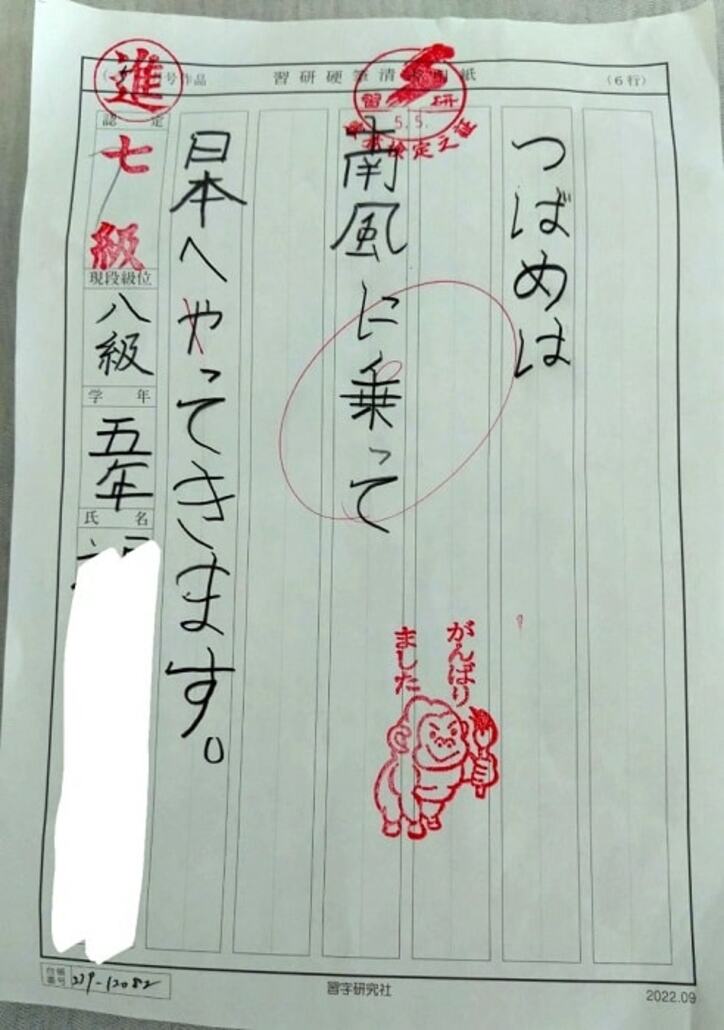 習研硬筆清
紙
（6行）
号作品
進
習研
5.5.
検定之証
つばめは
南風に乗って
日本へやってきます。
がんばり
ました
認定
七級
現段級位
八級
学年
五年
氏名
台帳
番号
習字研究社
2022.09